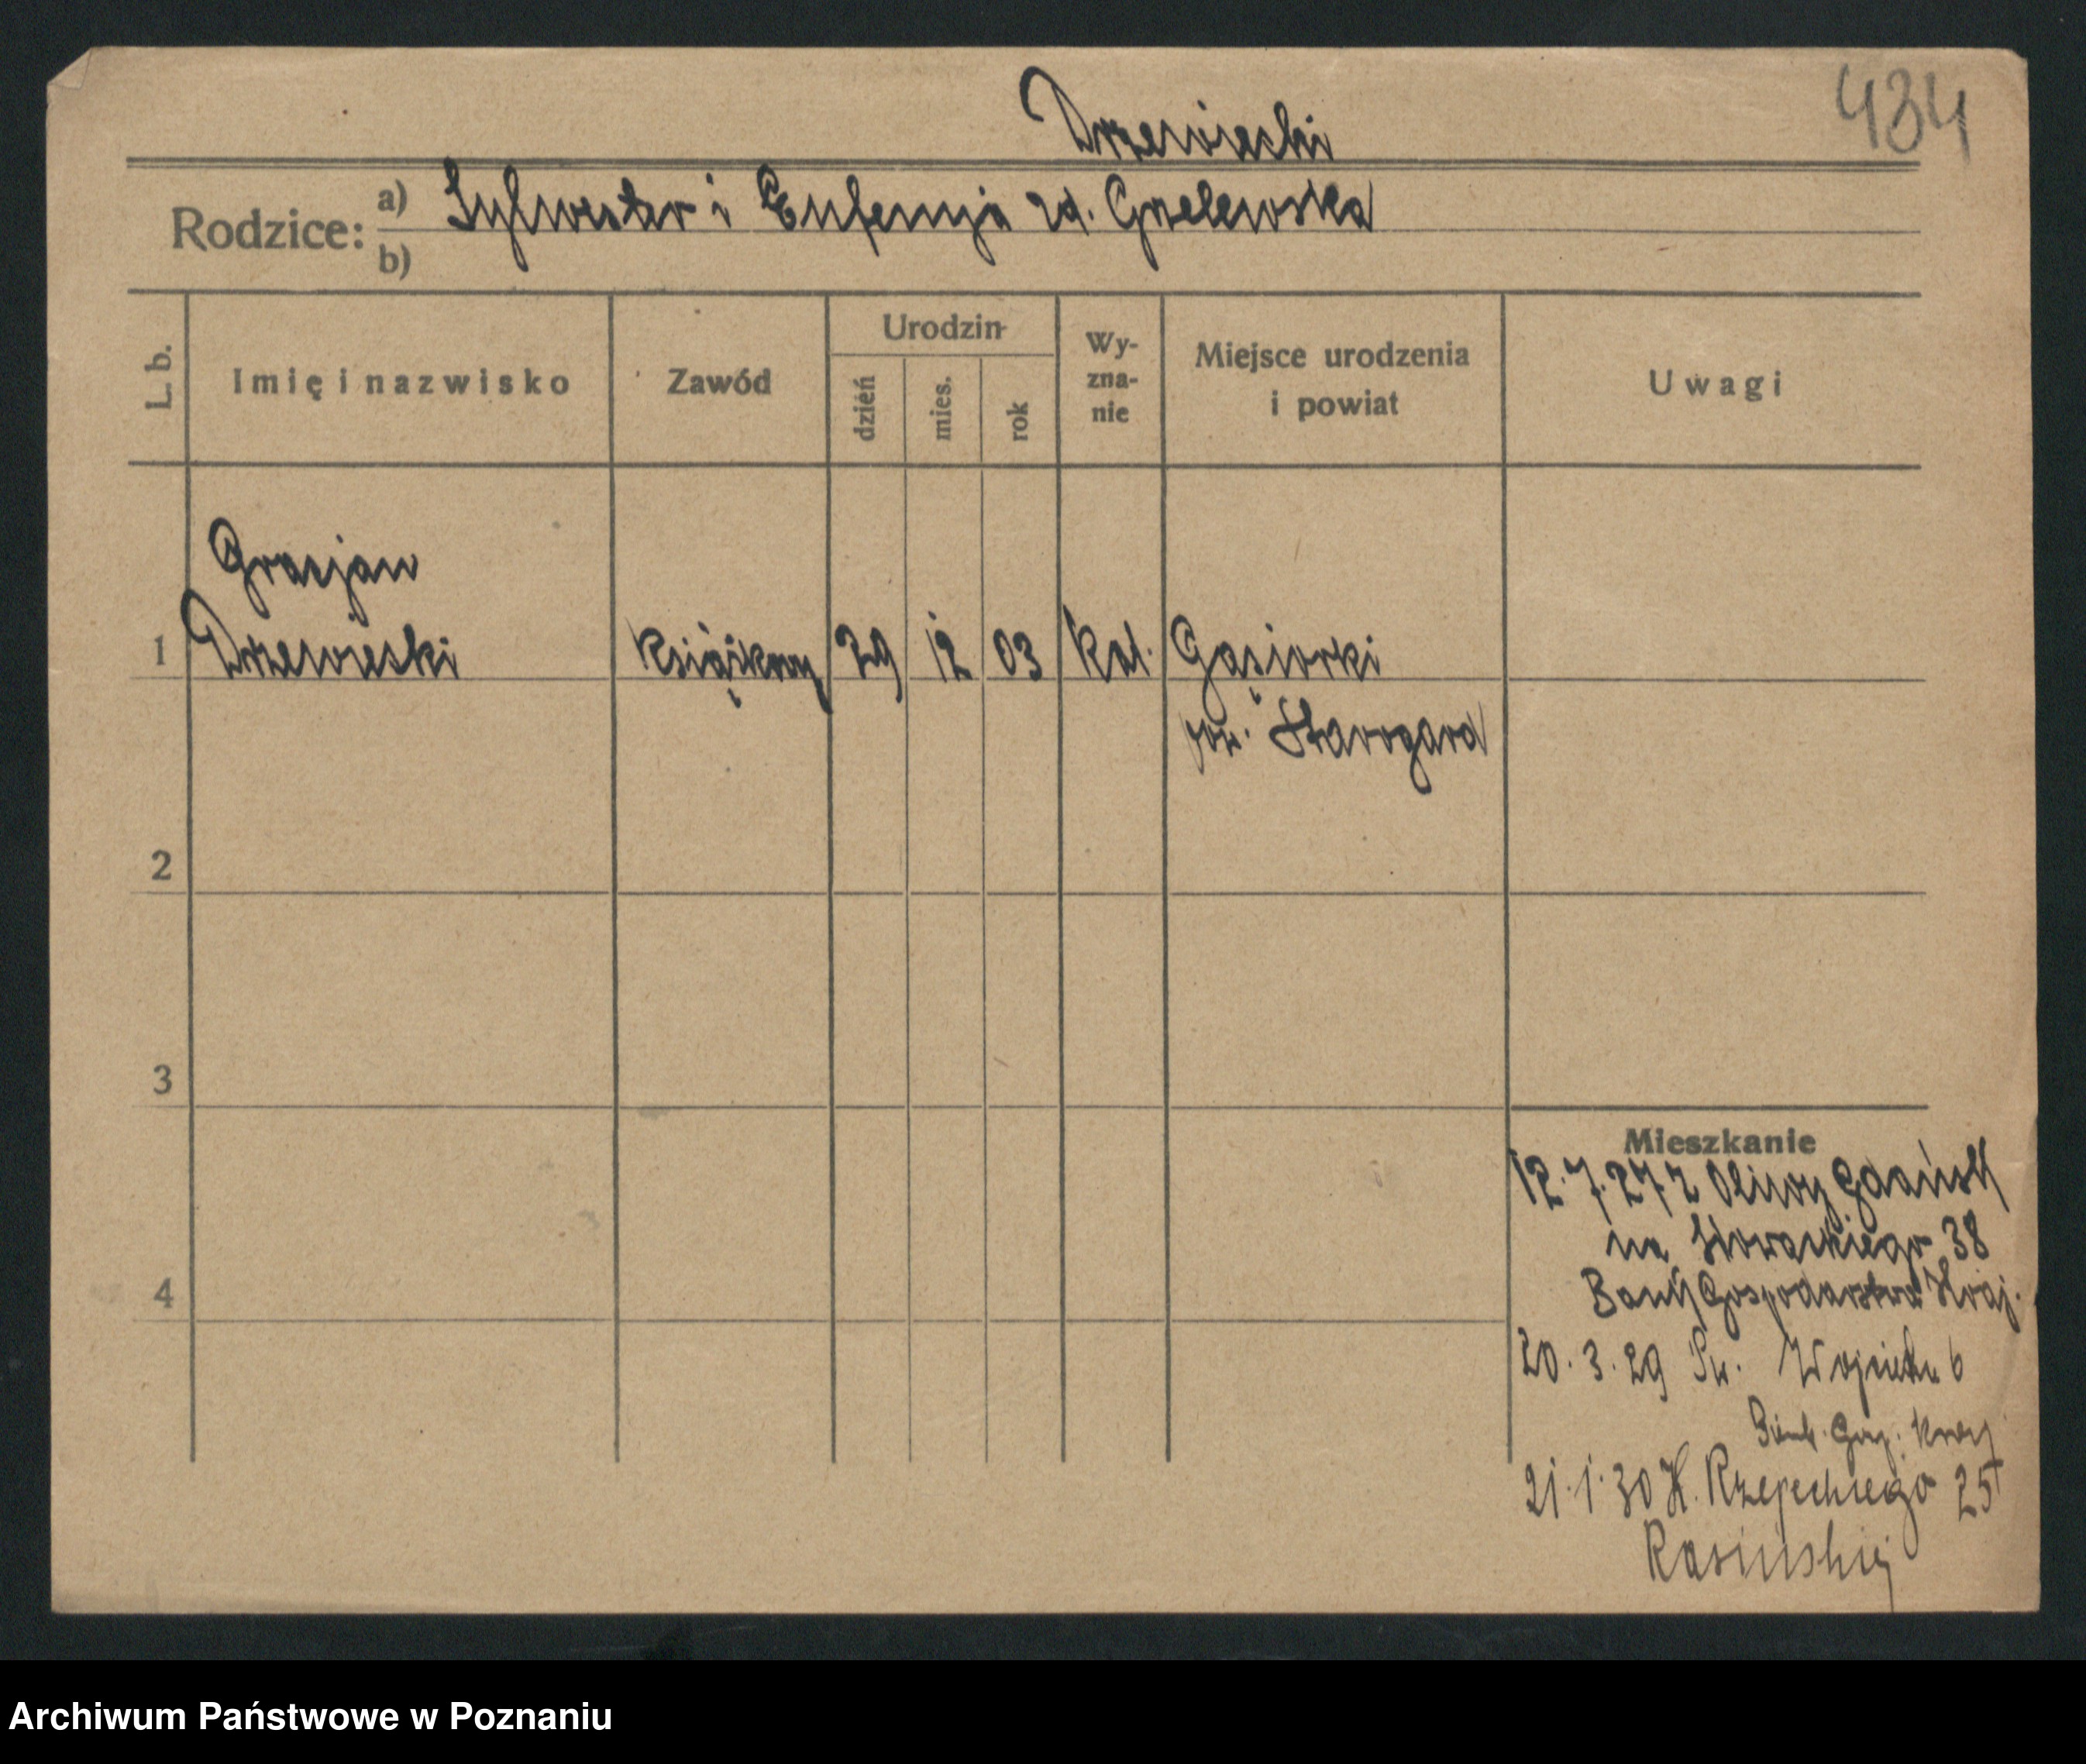 434
Drzewiecki
Rodzice:
a) Sylwester i Eufemja zd. Grelewska
b)
L. b.
Imię i nazwisko
Zawód
Urodzin
dzień
mies.
rok
Wy-
zna-
nie
Miejsce urodzenia
i powiat
Uwagi
Gracjan
1 Drzewiecki książkowy 29 12 03 kat. Gąsiorki
pow. Starogard
2
3
4
Mieszkanie
12.7.27 z Oliwy Gdańsk
na Słowackiego 38
Bank Gospodarstwa Kraj.
20.3.29 Św. Wojciech 6
Bank. Gosp. Kraj
21.1.30 K. Rzepeckiego 25
Rasińskiej
Archiwum Państwowe w Poznaniu